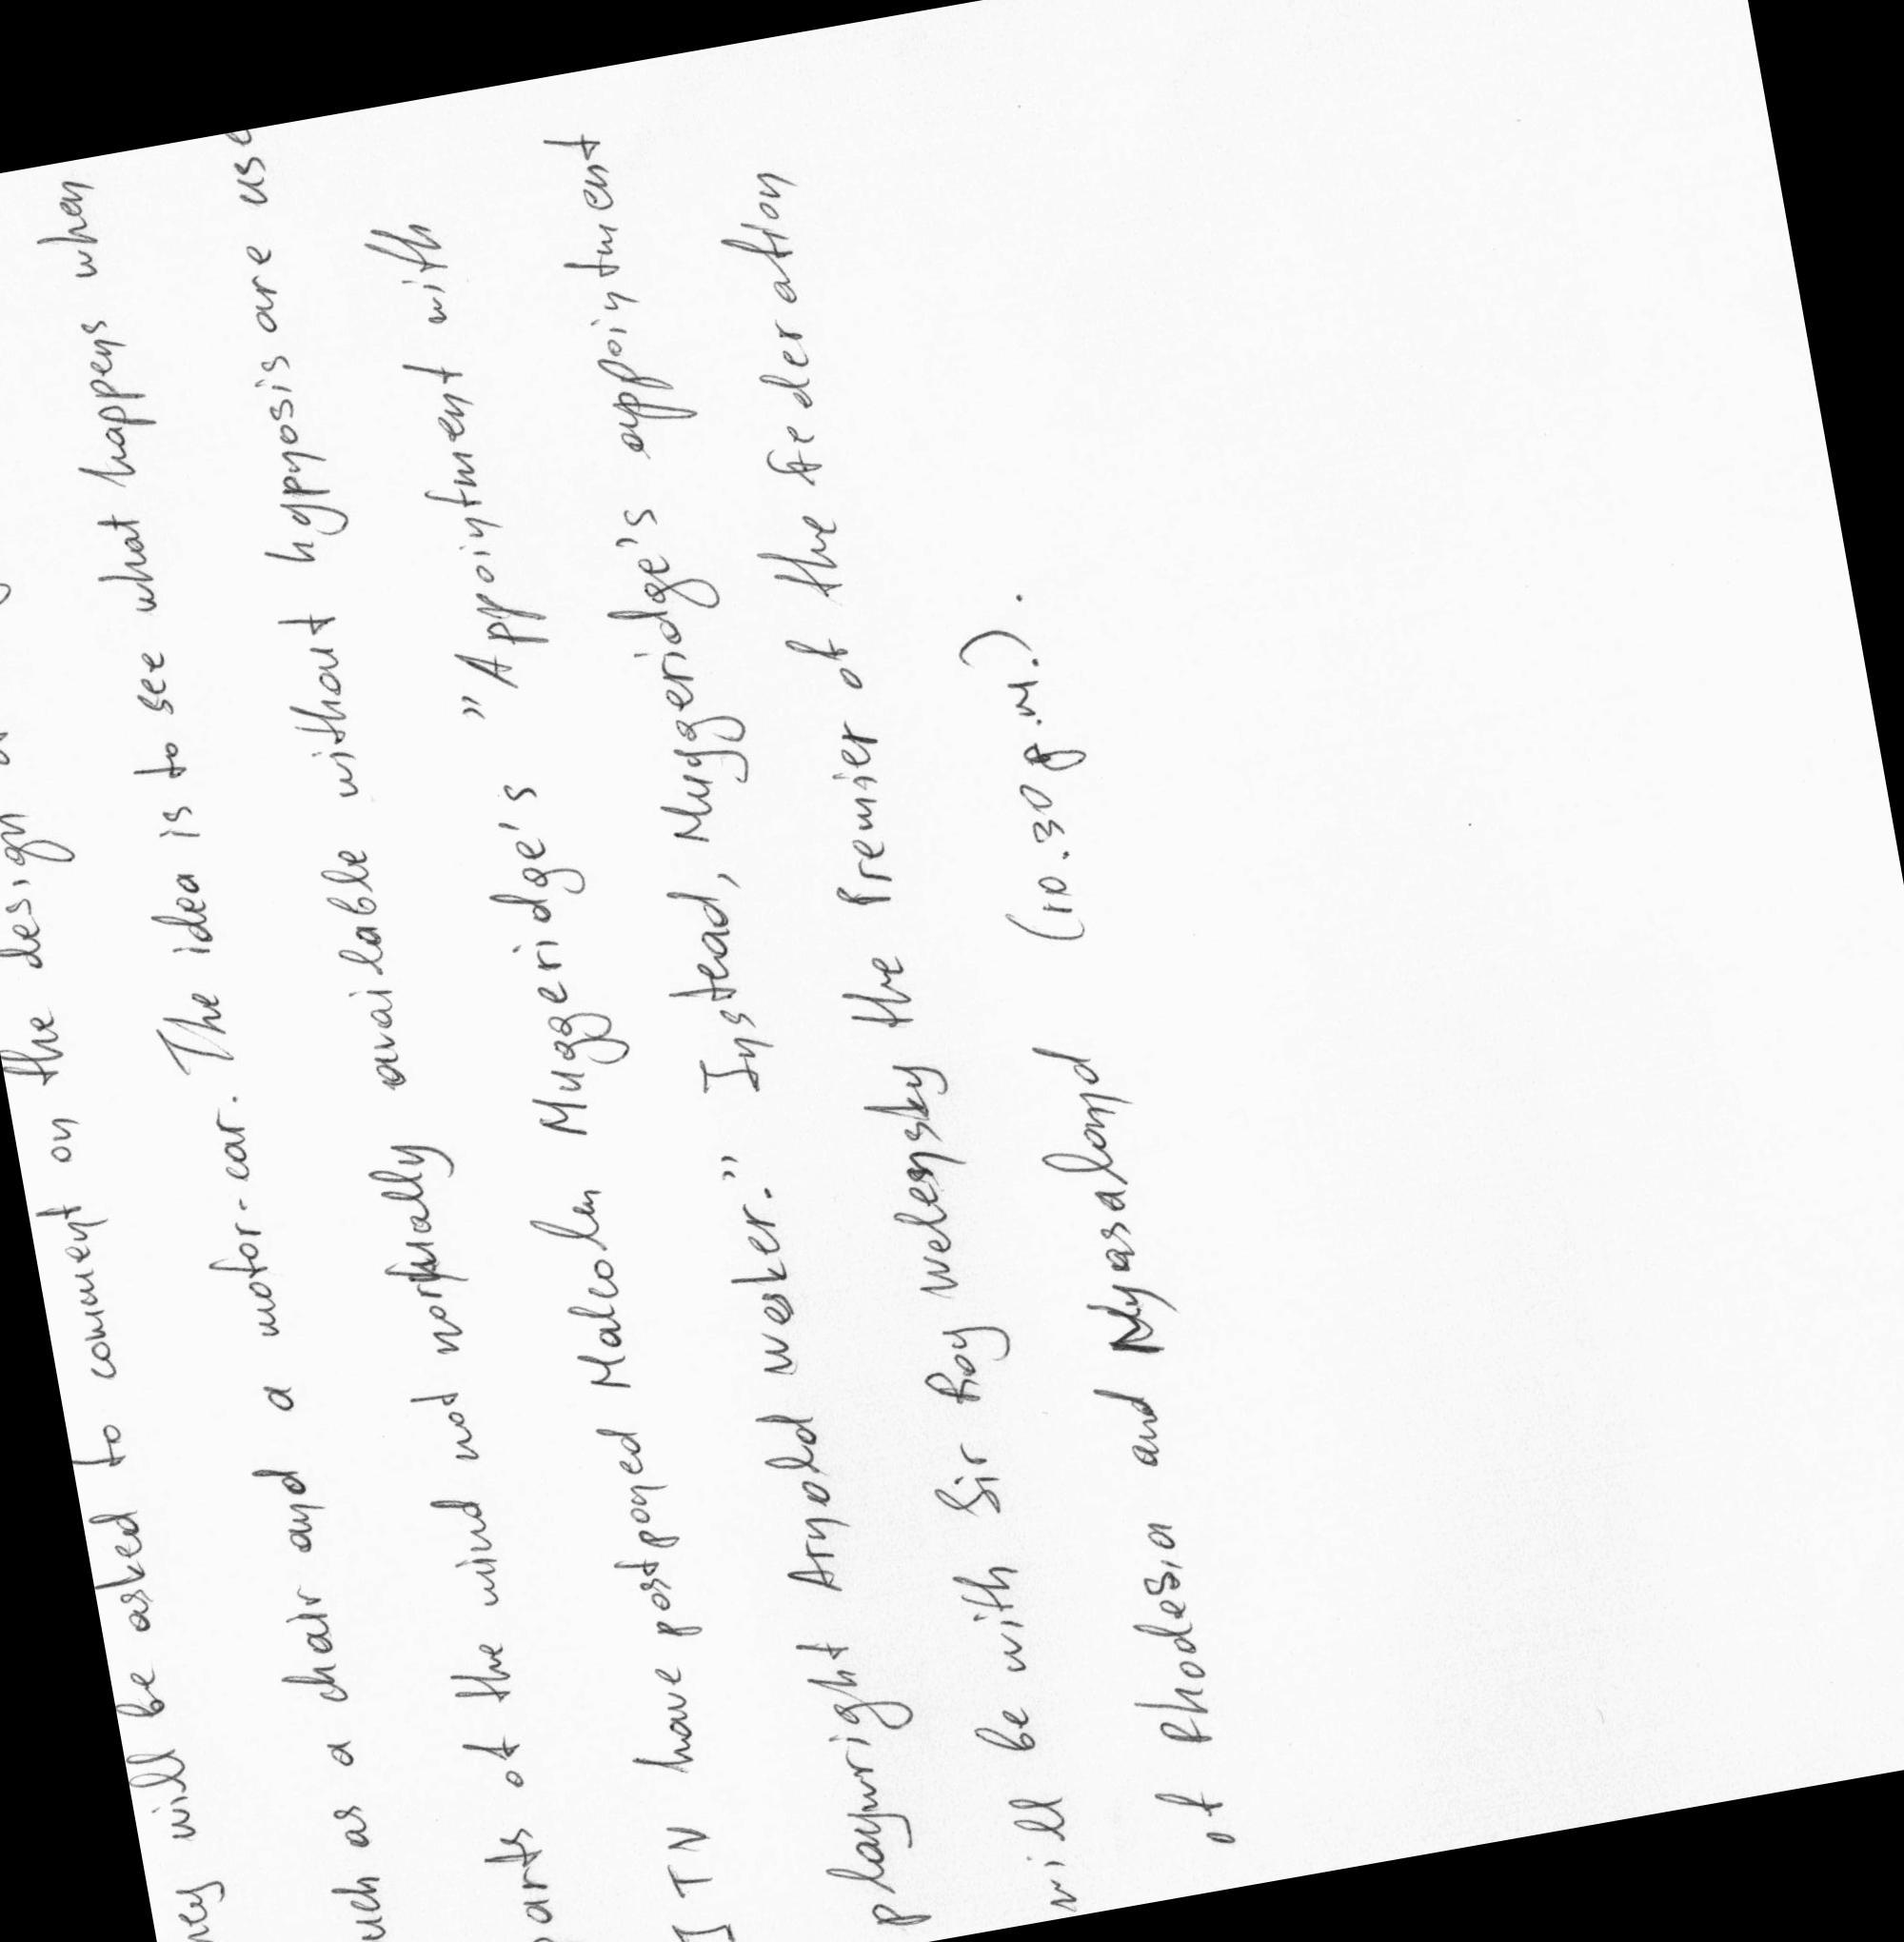 hey will be asked to comment on the design
uch as a chair and a motor-car. The idea is to see what happens when
parts of the mind not normally available without hypnosis are use
ITN have postponed Malcolm Muggeridge's "Appointment with
playwright Arnold Wesker." Instead, Muggeridge's appointment
will be with Sir Roy Welensky the Premier of the Federation
of Rhodesia and Nyasaland (10.30 p.m.).